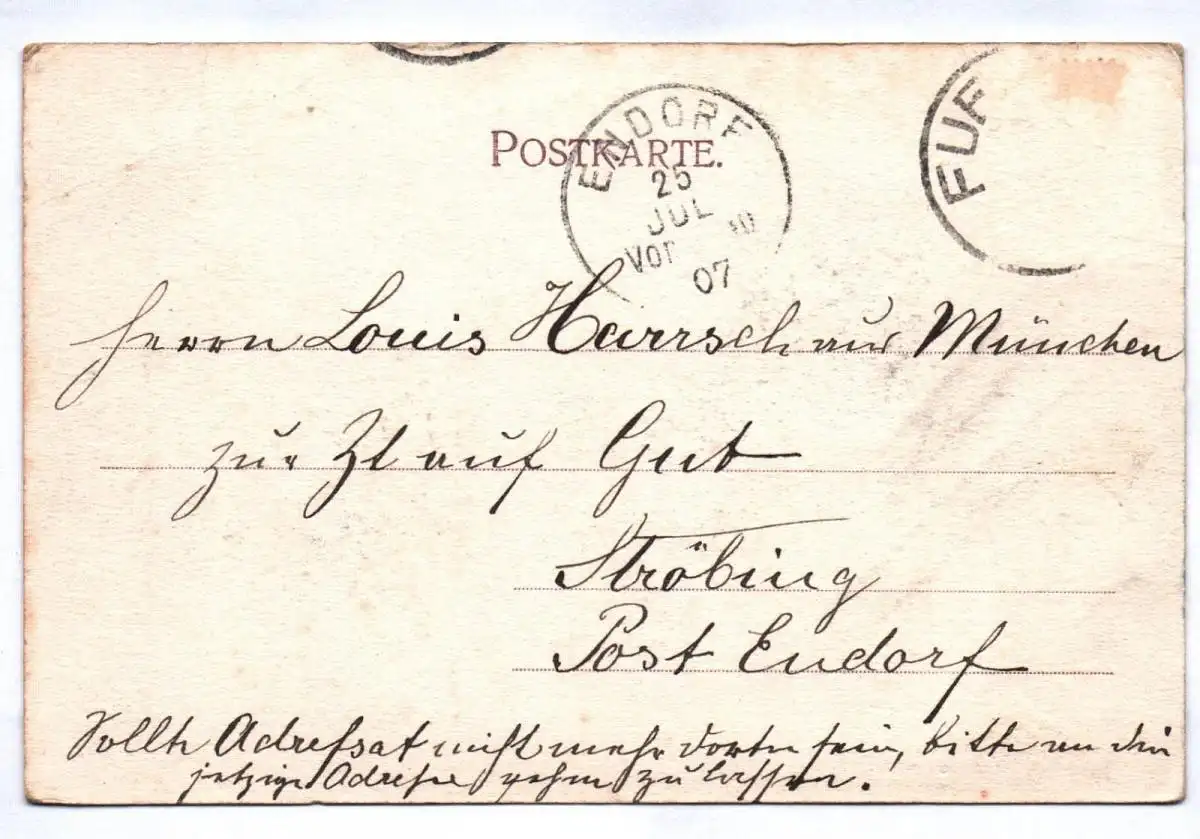 POSTKARTE.
ENDORF
25
JUL
Vor
07
FUF
Herrn Louis Harrsch aus München
zur Zt auf Gut
Ströbing
Post Endorf
Sollte Adressat nicht mehr dorten sein, bitte an die
jetzige Adresse gehen zu lassen.